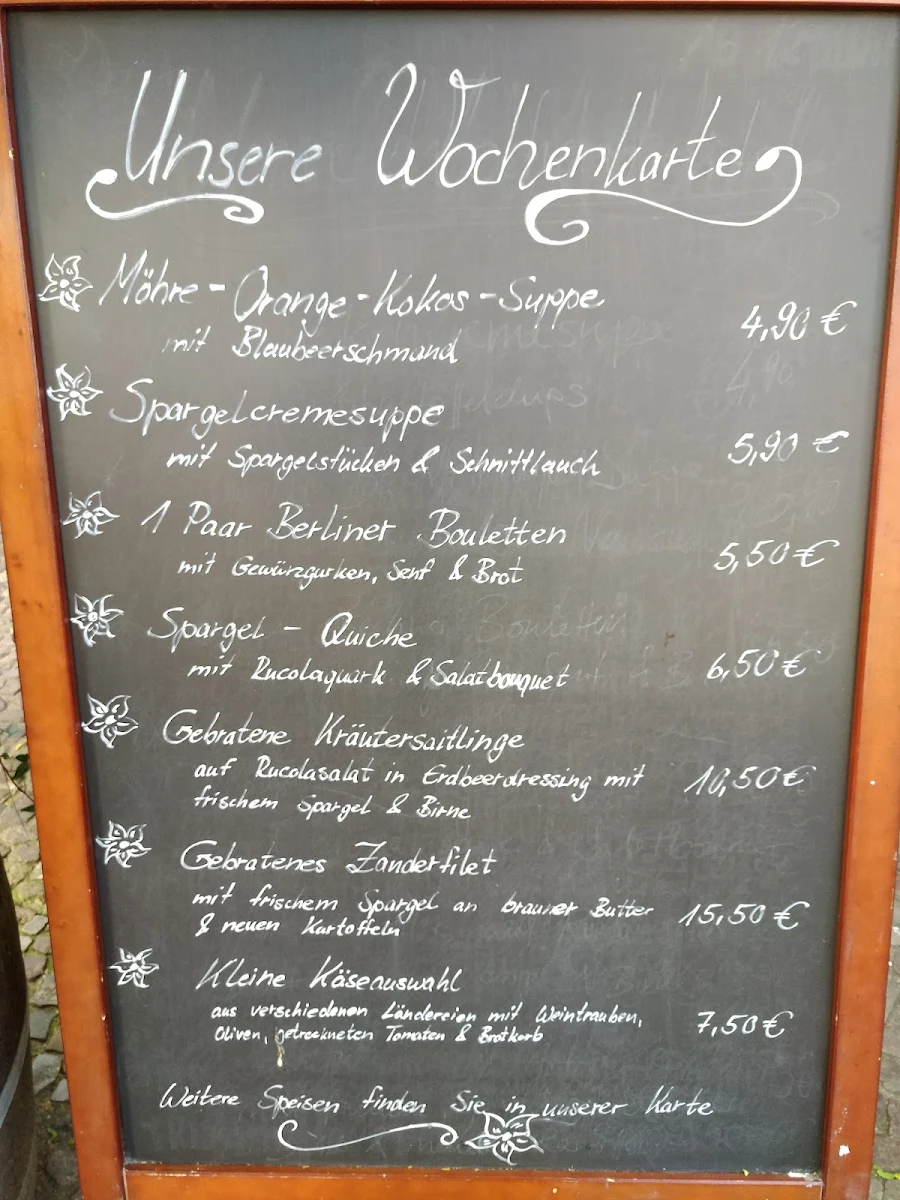 Unsere Wochenkarte
Möhre-Orange-Kokos-Suppe
mit Blaubeerschmand
4,90 €
Spargelcremesuppe
mit Spargelstücken & Schnittlauch
5,90 €
1 Paar Berliner Bouletten
mit Gewürzgurken, Senf & Brot
5,50 €
Spargel - Quiche
mit Rucolaquark & Salatbouquet
6,50 €
Gebratene Kräutersaitlinge
auf Rucolasalat in Erdbeerdressing mit
frischem Spargel & Birne
10,50 €
Gebratenes Zanderfilet
mit frischem Spargel an brauner Butter
& neuen Kartoffeln
15,50 €
Kleine Käseauswahl
aus verschiedenen Ländereien mit Weintrauben,
Oliven, getrockneten Tomaten & Brotkorb
7,50 €
Weitere Speisen finden Sie in unserer Karte